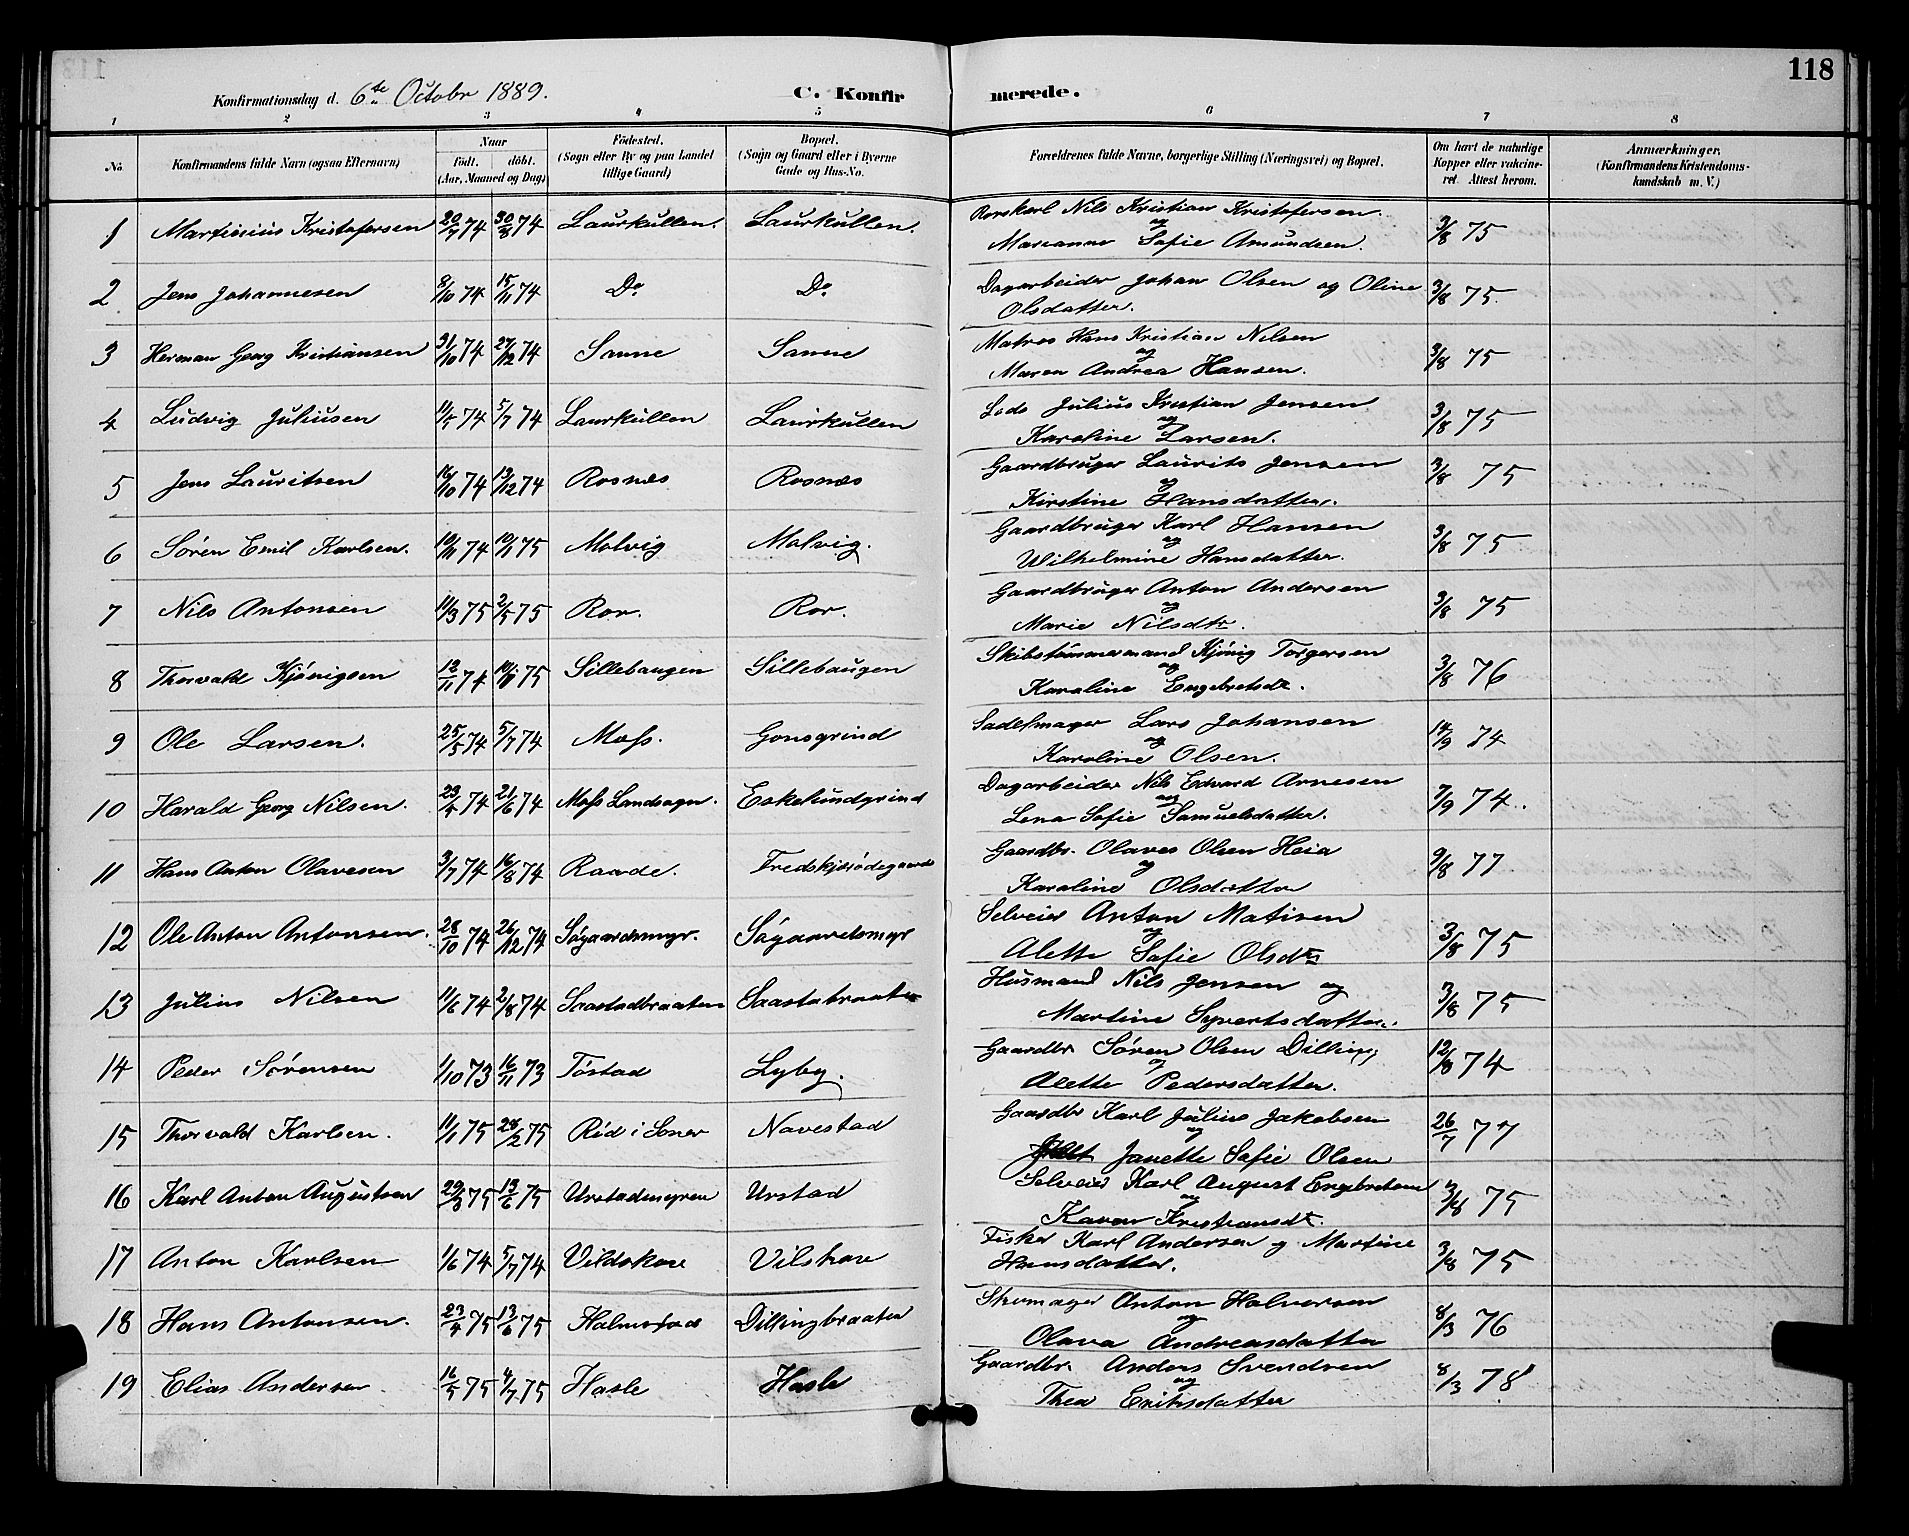 118
Konfirmationsdag d. 6te Octobr 1889. C. Konfirmerede.
1 2 3 4 5 6 7 8
No. Konfirmandens fulde Navn (ogsaa Efternavn) Naar födt. döbt. (Aar, Maaned og Dag) Födested. (Sogn eller By og paa Landet tillige Gaard) Bopæl. (Sogn og Gaard eller i Byerne Gade og Hus-No. Forældrenes fulde Navne, borgerlige Stilling (Næringsvei) og Bopæl. Om havt de naturlige Kopper eller vakcineret. Attest herom. Anmærkninger, (Konfirmandens Kristendomskundskab m. V.)
1 Martinius Kristofersen 20/7 74 30/8 74 Laurkullen. Laurkullen. Rorskarl Nils Kristian Kristofersen og 3/8 75
Marianne Sofie Amundsen.
2 Jens Johannesen 8/10 74 15/11 74 Do Do Dagarbeider Johan Olsen og Oline 3/8 75.
Olsdatter.
3 Herman Georg Kristiansen 31/10 74 27/12 74 Sanne Sanne Matros Hans Kristian Nilsen og 3/8 75
Maren Andrea Hansen.
4 Ludvig Juliusen 11/5 74 5/7 74 Laurkullen Laurkullen Lods Julius Kristian Jensen og 3/8 75
Karoline Larsen.
5 Jens Lauritsen 16/10 74 13/12 74 Rosnæs Rosnæs Gaardbruger Laurits Jensen og 3/8 75
Kirstine Hansdatter.
6 Søren Emil Karlsen. 10/11 74 10/1 75 Molvig Molvig. Gaardbruger Karl Hansen og 3/8 75
Wilhelmine Hansdatter.
7 Nils Antonsen 11/3 75 2/5 75 Ror. Ror. Gaardbruger Anton Andersen og 3/8 75
Marie Nilsdtr.
8 Thorvald Kjønigsen 12/11 74 10/1 75 Sillebaugen Sillebaugen Skibstømmermand Kjønig Torgersen og 3/8 76
Karoline Engebretsdt.
9 Ole Larsen. 25/5 74 5/7 74 Moss. Gonsgrind Sadelmager Lars Johansen og 14/9 74
Karoline Olsen.
10 Harald Georg Nilsen. 23/4 74 21/6 74 Moss Landsogn. Eskelundgrind Dagarbeider Nils Edvard Arnesen og 7/9 74.
Lena Sofie Samuelsdatter.
11 Hans Anton Olavesen 3/7 74 16/8 74 Raade. Gaardbr. Olaves Olsen Heia og 9/8 77
Karoline Olsdatter
12 Ole Anton Antonsen. 28/10 74 26/12 74 Søgaardsmyr. Søgaardsmyr Selveier Anton Matisen og 3/8 75
Alette Sofie Olsdtr
13 Julius Nilsen 11/6 74 2/8 74 Saastadbraaten Saastabraaten Husmand Nils Jensen og 3/8 75
Martine Syvertsdatter.
14 Peder Sørensen 1/10 73 16/11 73 Tøstad Lyby. Gaardbr Søren Olsen Dilling og 12/8 74
Alette Pedersdatter.
15 Thorvald Karlsen. 11/1 75 28/2 75 Rød i Soner Navestad Gaardbr Karl Julius Jakobsen og 26/7 77
Janette Sofie Olsen
16 Karl Anton Augustsen 29/3 75 13/6 75 Urstadmyren Urstad Selveier Karl August Engebretsen og 3/8 75
Karen Kristiansdt.
17 Anton Karlsen 1/6 74 5/7 74 Vildskore Vilskore Fisker Karl Andersen og Martine 3/8 75
Hansdatter.
18 Hans Antonsen. 23/4 75 13/6 75 Dillingbraaten Skomager Anton Halvorsen og 8/3 76
Olava Andreasdatter
19 Elias Andersen. 16/5 75 4/7 75 Hasle Hasle Gaardbr. Anders Svendsen og 8/3 78
Thea Eriksdatter